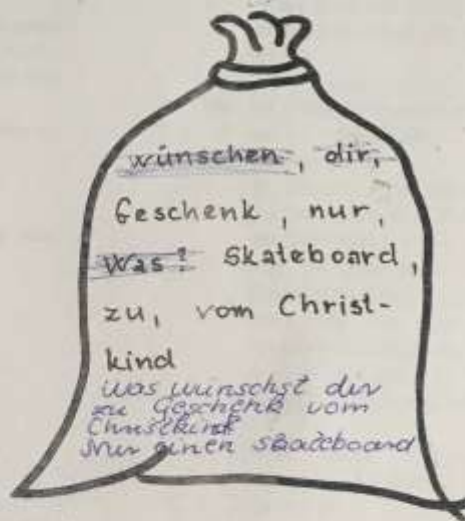 wünschen, dir,
Geschenk, nur,
Was? Skateboard,
zu, vom Christ-
kind
was wünschst dir
zu Geschenk vom
Christkind
Nur einen skateboard